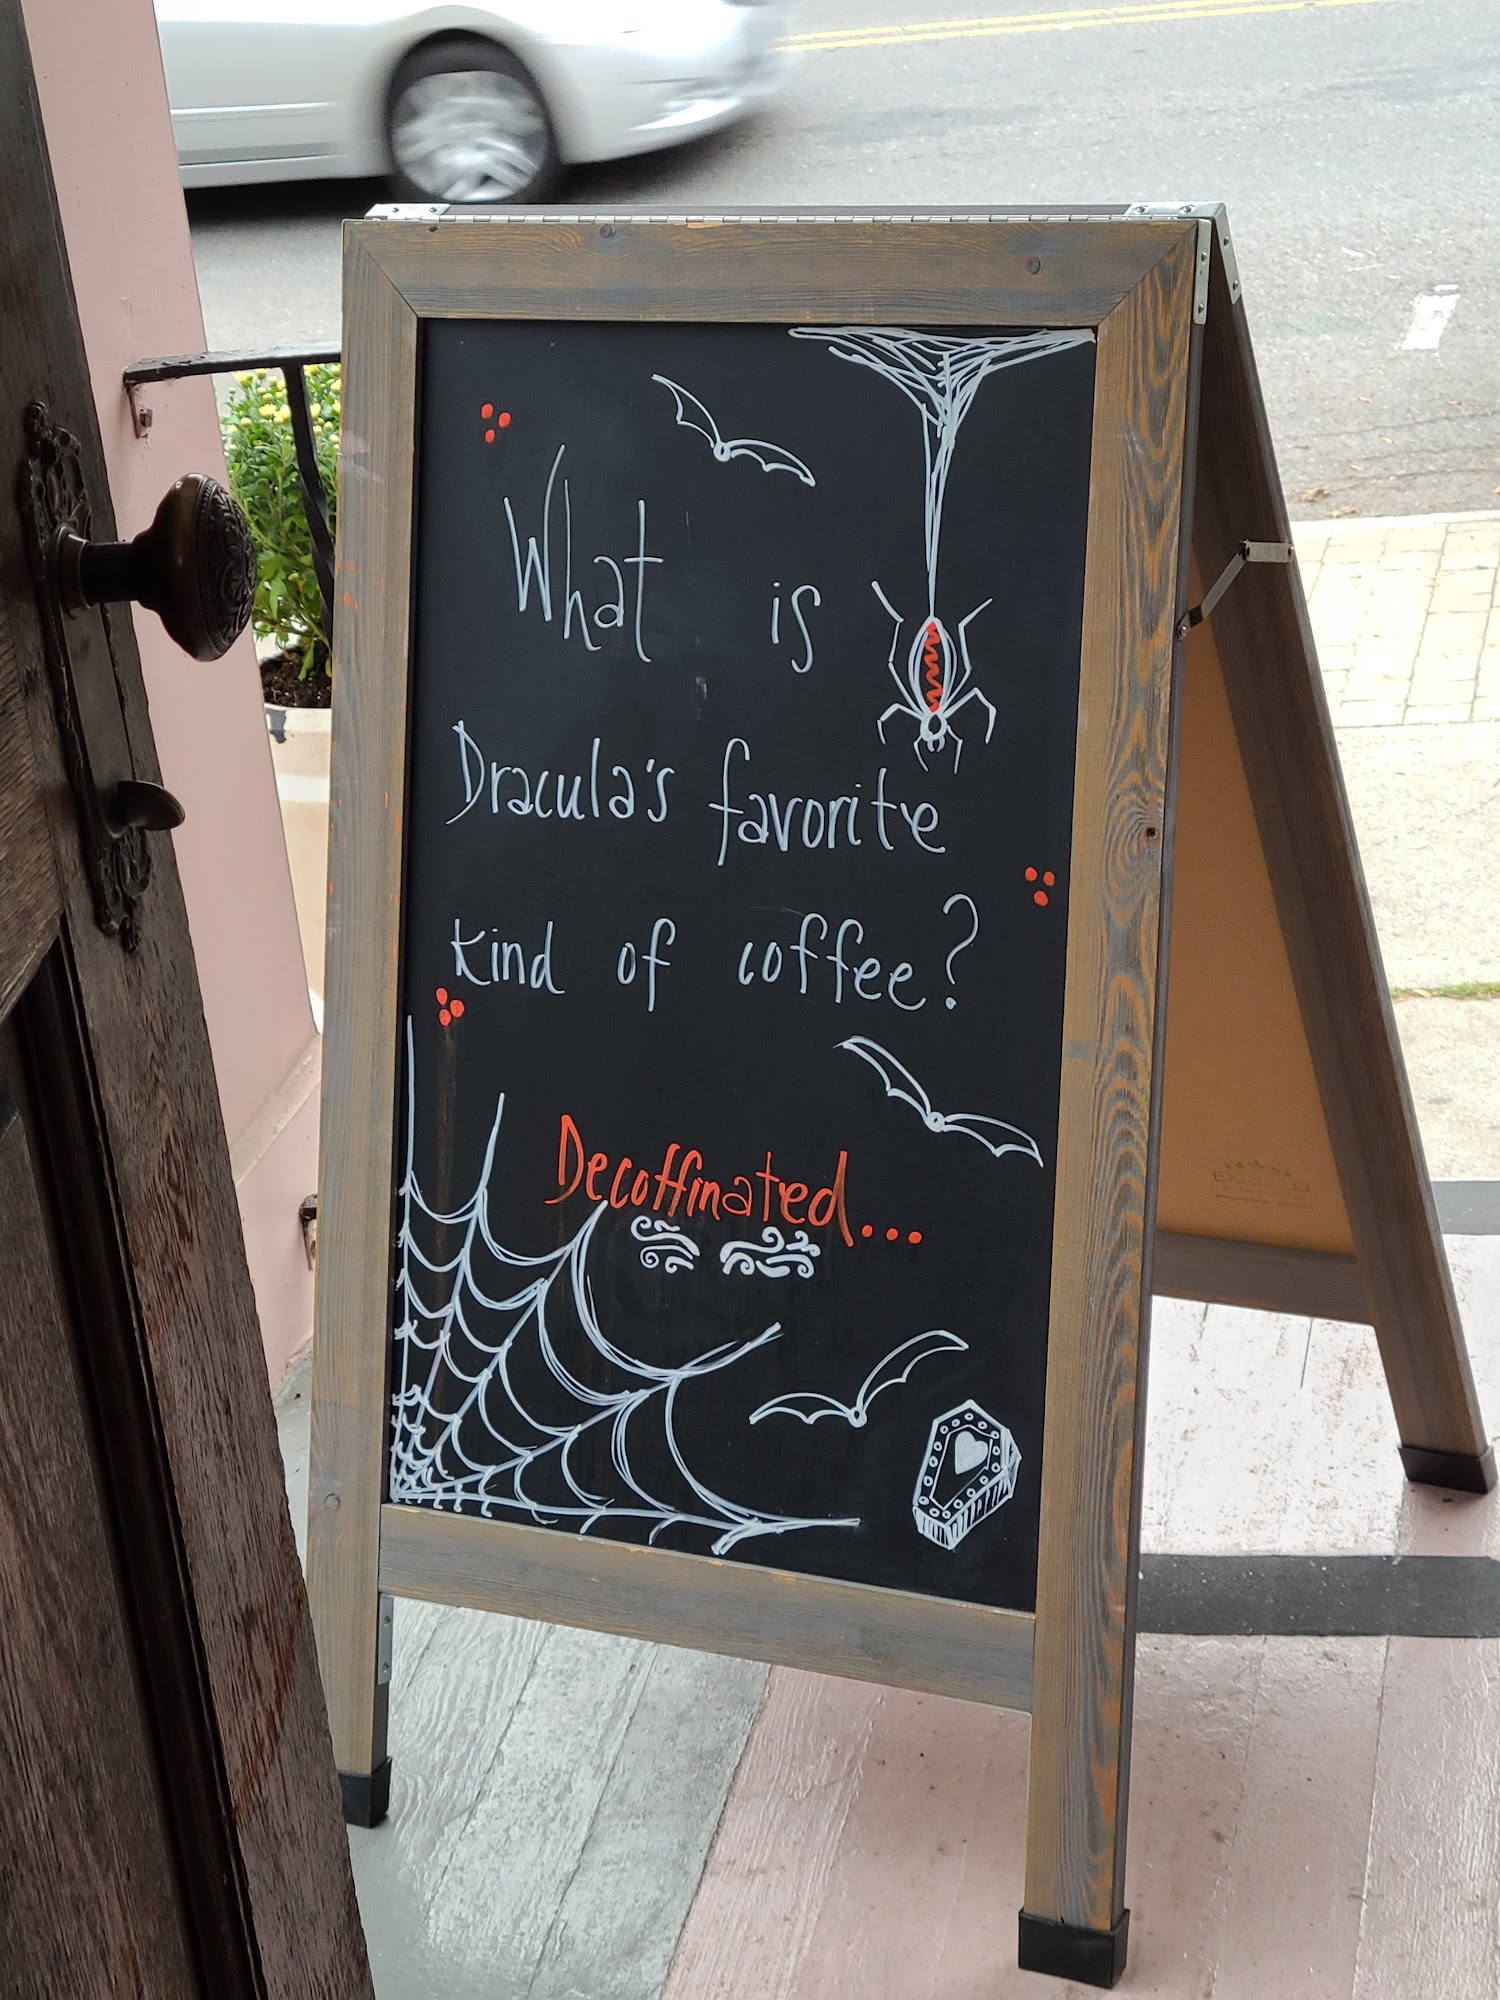 What is
Dracula's favorite
kind of coffee?
Decoffinated...